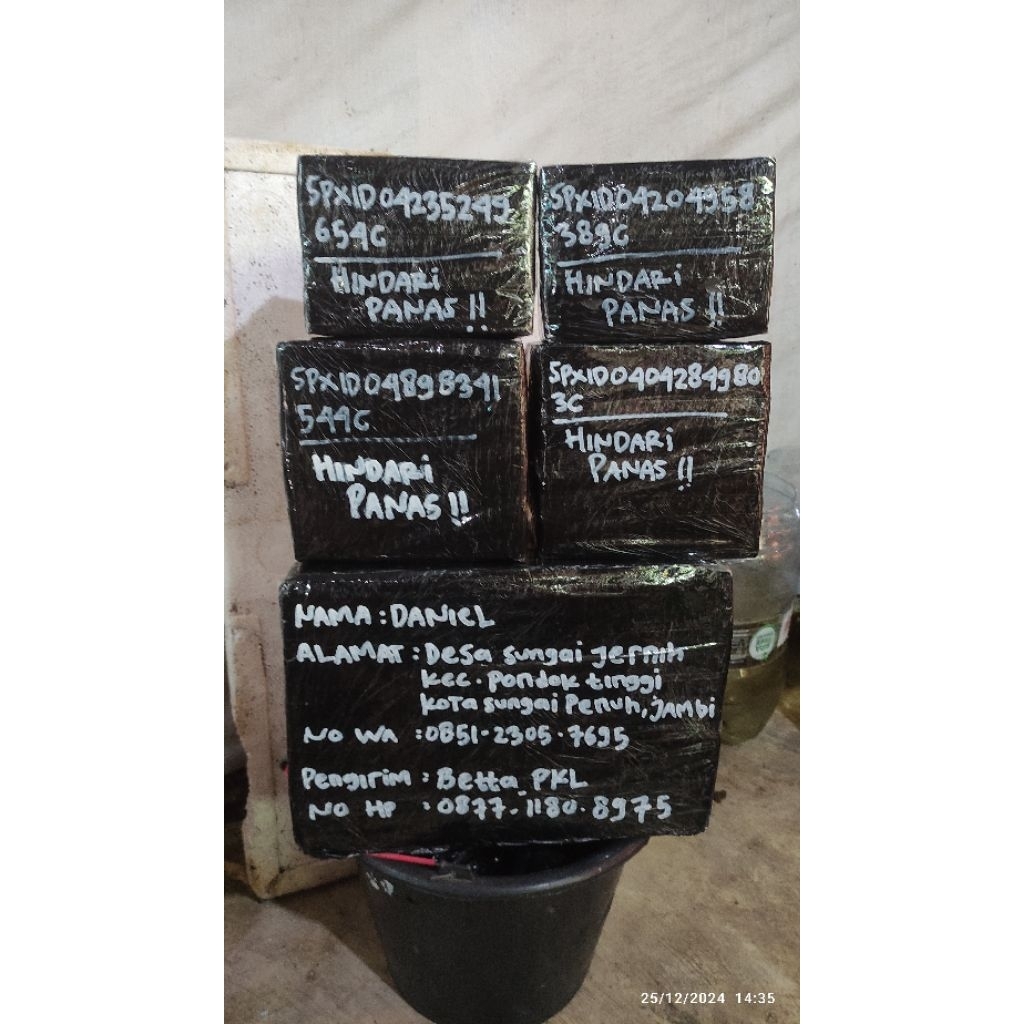 SPXID04235249
654C
HINDARI
PANAS !!
SPXID04204958
389C
HINDARI
PANAS !!
SPXID04898341
544C
HINDARI
PANAS !!
SPXID0404284980
3C
HINDARI
PANAS !!
NAMA : DANIEL
ALAMAT : Desa sungai jernih
Kec. Pondok tinggi
Kota sungai Penuh, jambi
NO WA : 0851-2305-7695
Pengirim : Betta_PKL
NO HP : 0877-1180-8975
25/12/2024 14:35